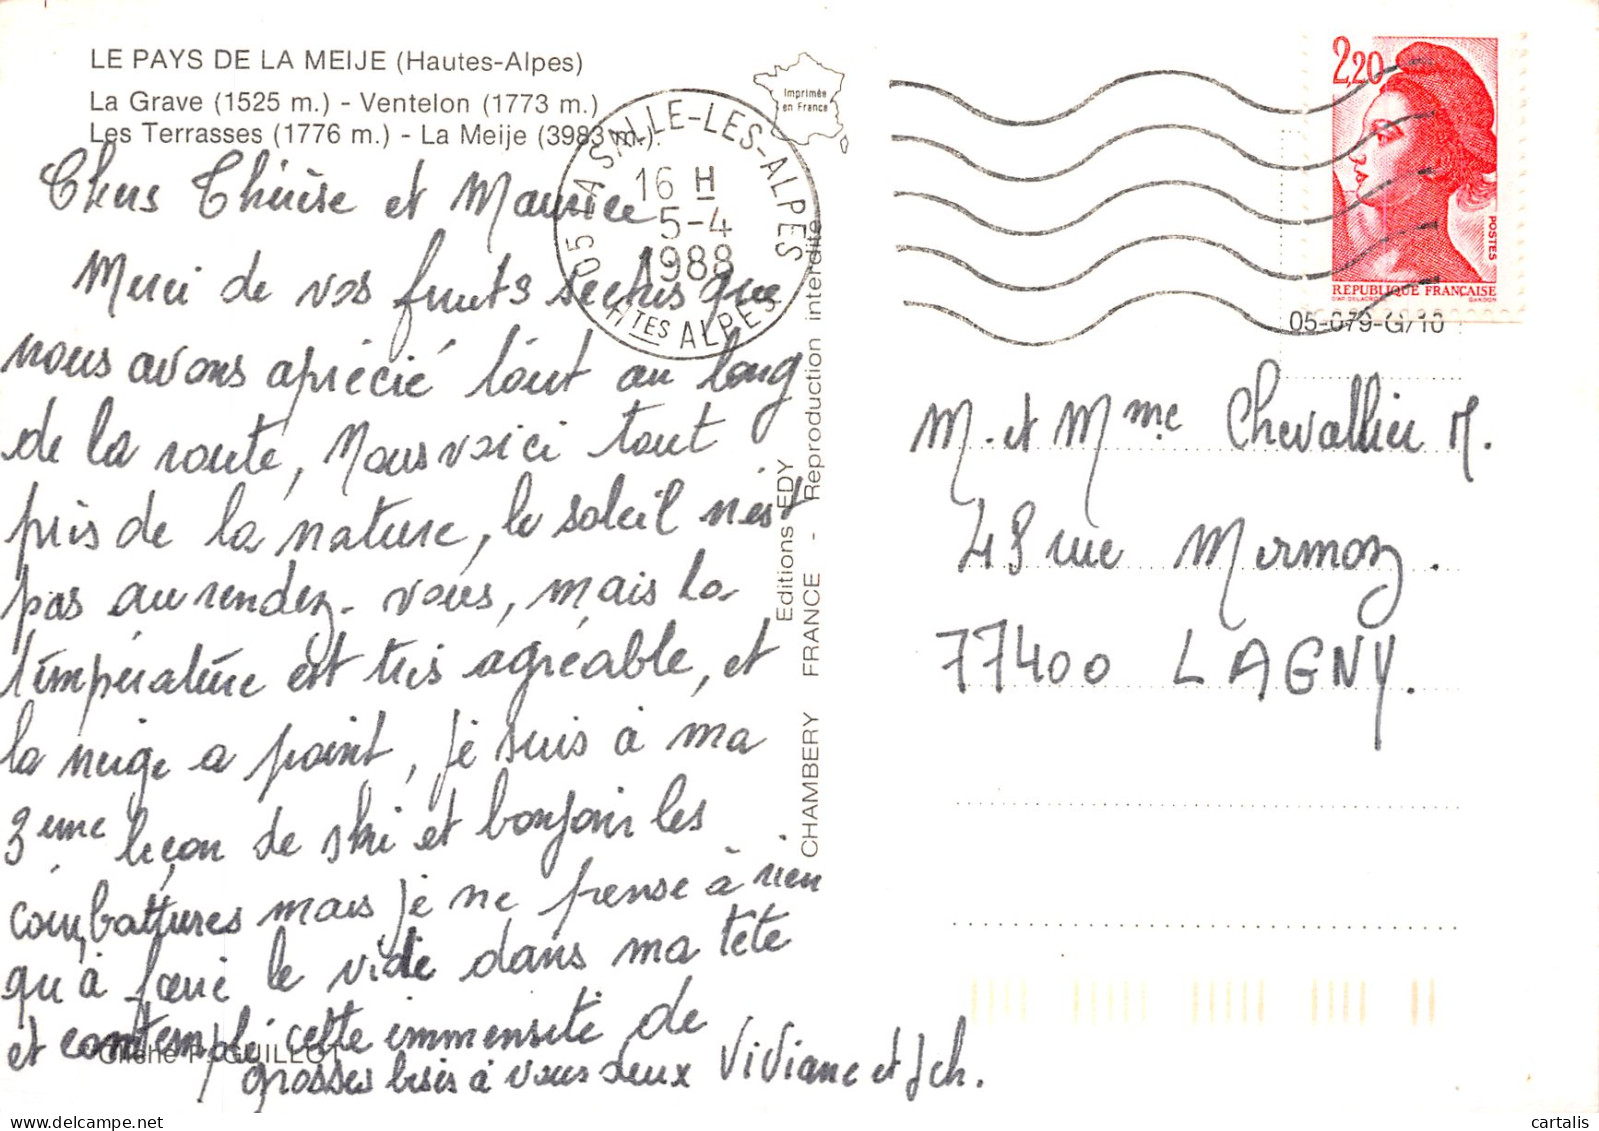 LE PAYS DE LA MEIJE (Hautes-Alpes)
La Grave (1525 m.) - Ventelon (1773 m.)
Les Terrasses (1776 m.) - La Meije (3983 m.).
Imprimée
en France
05 LA SALLE-LES-ALPES
16 H
5-4
1988
HTES ALPES
2,20
POSTES
REPUBLIQUE FRANÇAISE
05-079-G/10
Chers Thérèse et Maurice
Merci de vos fruits sechés que
nous avons aprécié tout au long
de la route, Nous voici tout
près de la nature, le soleil n'est
pas au rendez-vous, mais la
température est très agréable, et
la neige a point, je suis à ma
3eme leçon de ski et bonjoir les
courbattures mais je ne pense à rien
qu'à faire le vide dans ma tête
et contemplé cette immensité de
grosses bises à vous deux Viviane et Jch.
Cliché P. GUILLOT
Editions EDY
CHAMBERY FRANCE - Reproduction interdite
M. et Mme Chevallier M.
48 rue Mermoz.
77400 LAGNY.
cartalis